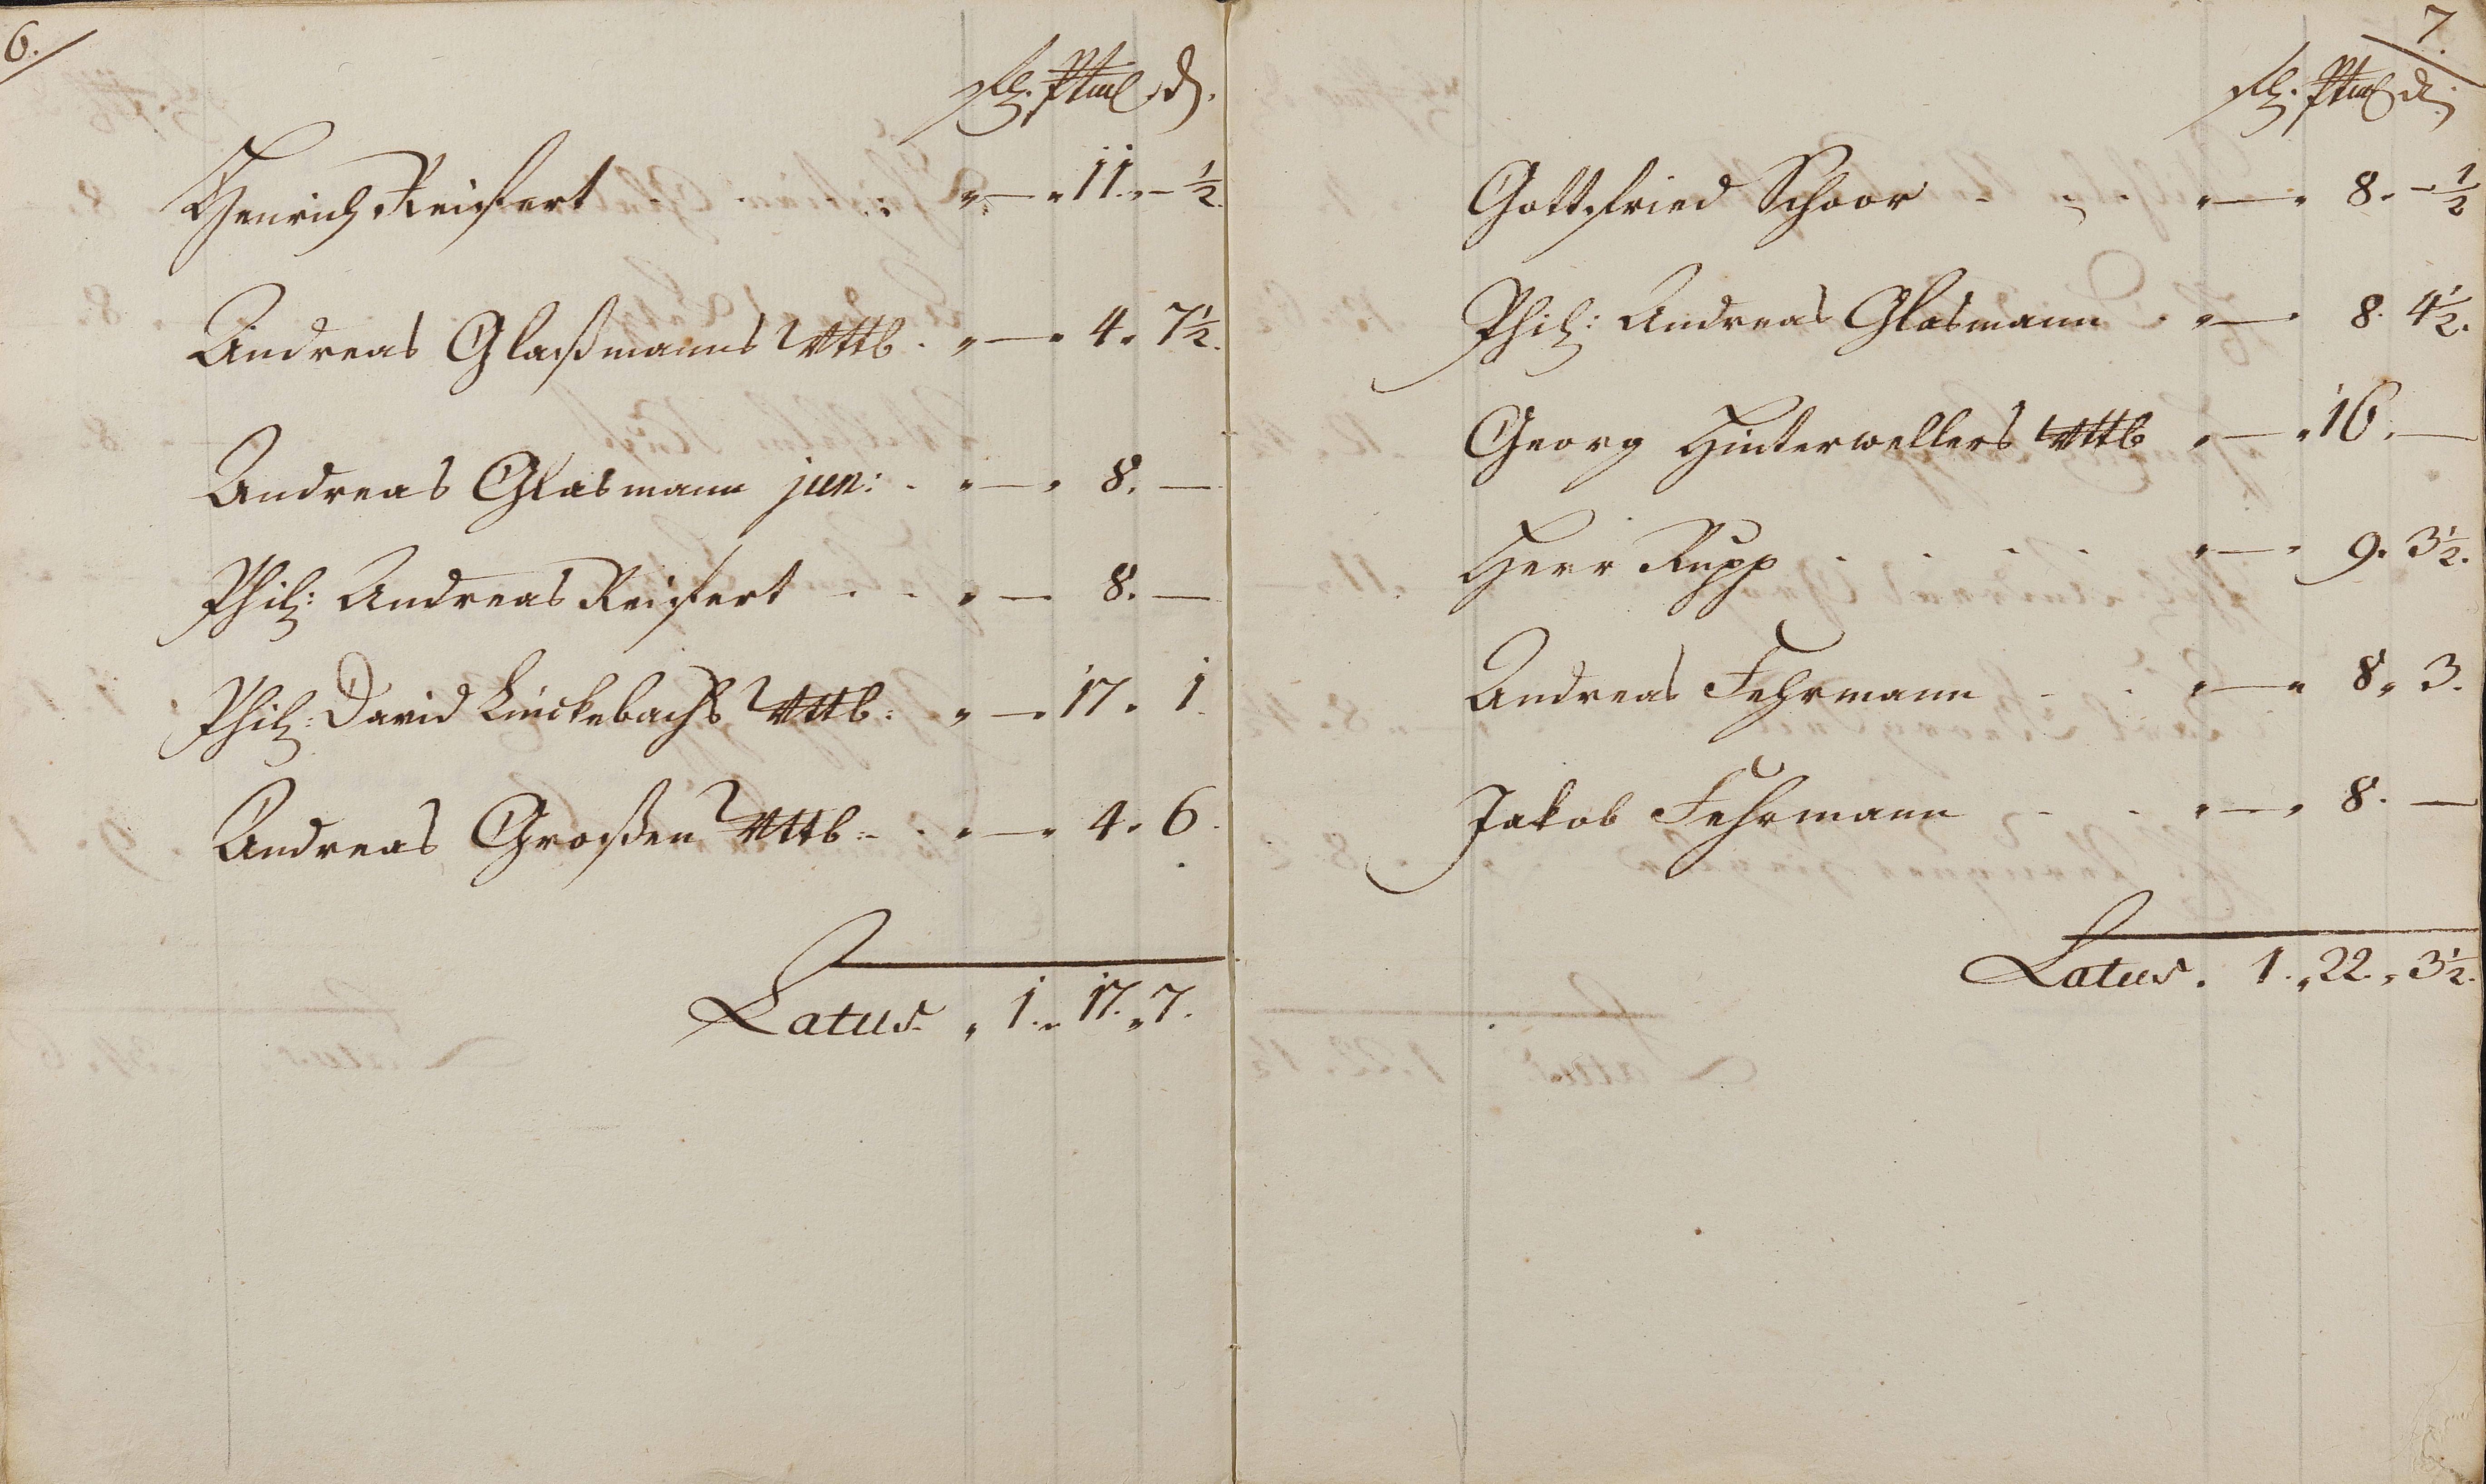 6.
Rh. Ptml d.
Henrich Reifert . . . „ — „ 11. „ — ½.
Andreas Glaßmanns Wttb. „ — „ 4. 7½.
Andreas Glasmann jun: . „ — „ 8. —
Phil: Andreas Reifert . . „ — 8. —
Phil: David Linckebachs Wttb: „ — „ 17. 1.
Andreas Großen Wttb: . „ — „ 4. 6.
Latus „ 1. „ 17. „ 7.
7.
Gottfried Schoor . . . „ — „ 8. — ½
Phil: Andreas Glasmann . „ — „ 8. 4½.
Georg Hinterwellers Wttb „ — „ 16. —
Herr Rupp . . . . „ — „ 9. 3½.
Andreas Fehrmann . . „ — „ 8. 3.
Jakob Fehrmann . . „ — „ 8. —
Latus. 1. „ 22. „ 3½.